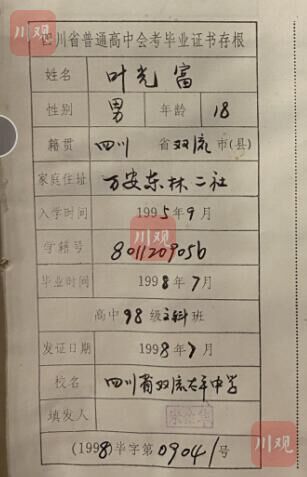 川观
四川省普通高中会考毕业证书存根
姓名 叶光富
性别 男 年龄 18
籍贯 四川 省 双流 市(县)
家庭住址 万安东林二社
入学时间 1995年9月
川观
学籍号 801120905b
毕业时间 1998年7月
高中98级文科班
发证日期 1998年7月
校名 四川省双流太平中学
填发人
(1998)毕字第09041号
川观